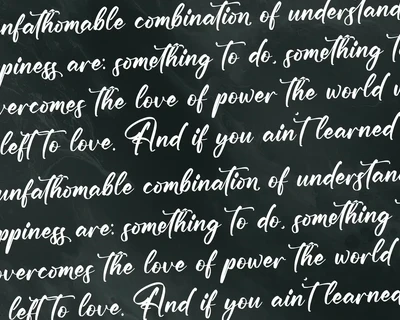 nfathomable combination of understand
ppiness are: something to do, something t
vercomes the love of power the world w
left to love. And if you ain't learned
unfathomable combination of understand
ppiness are: something to do, something
overcomes the love of power the world
left to love. And if you ain't learned